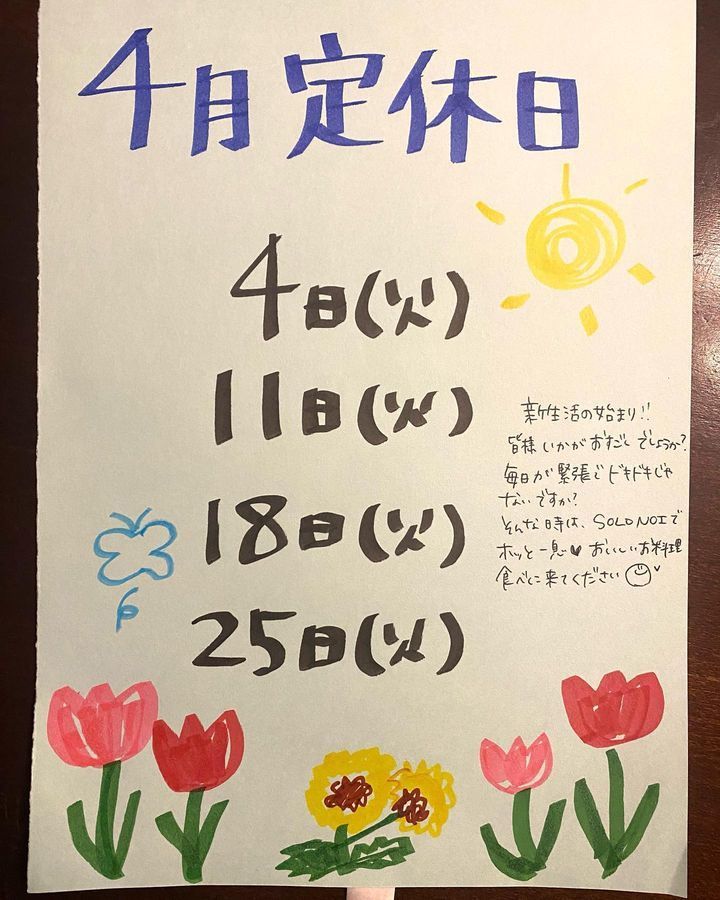 4月定休日
4日(火)
11日(火)
18日(火)
25日(火)
新生活の始まり!!
皆様いかがおすごしでしょうか?
毎日が緊張でドキドキじゃ
ないですか?
そんな時は、SOLO NOIで
ホッと一息♥おいしいお料理
食べに来てください